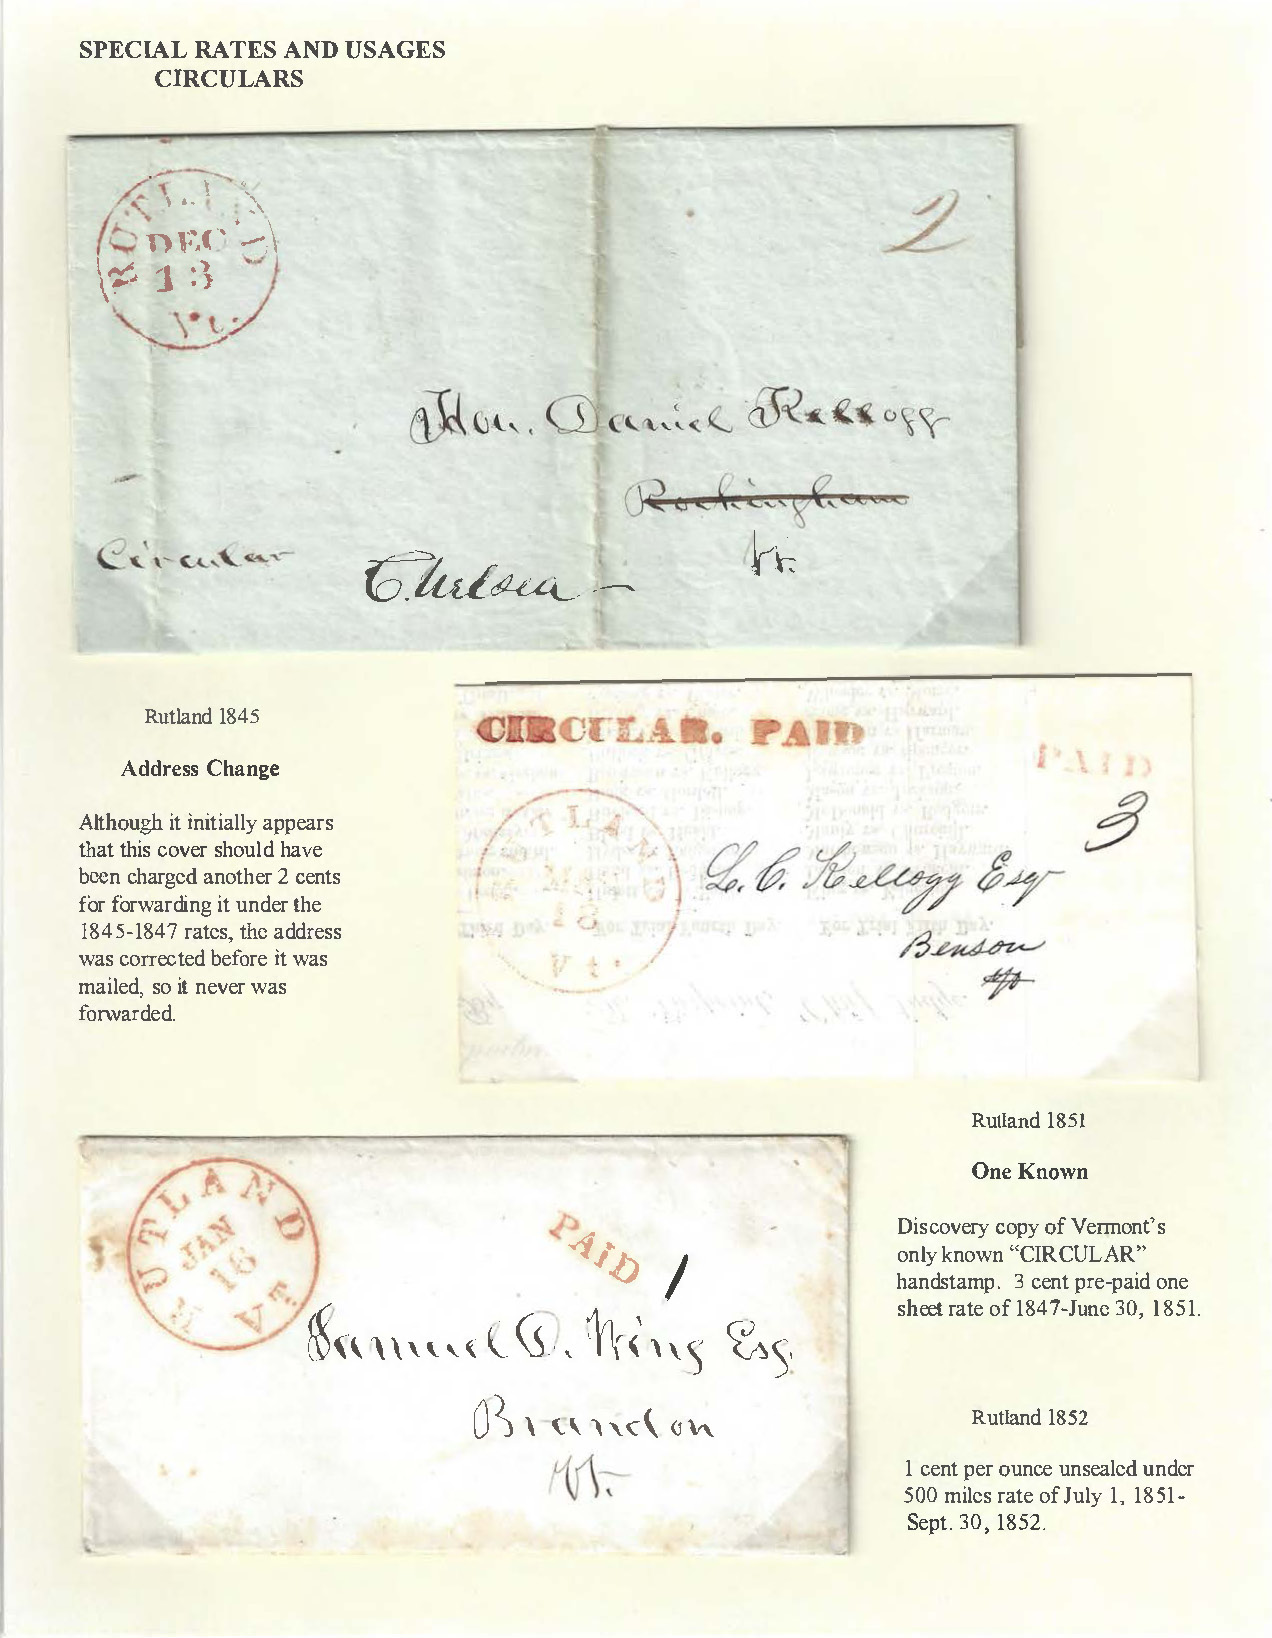 SPECIAL RATES AND USAGES
CIRCULARS
RUTLAND
DEC
13
Vt.
2
Hon. Daniel Kellogg
Rockingham
Vt.
Circular
Chelsea
Rutland 1845
Address Change
Although it initially appears
that this cover should have
been charged another 2 cents
for forwarding it under the
1845-1847 rates, the address
was corrected before it was
mailed, so it never was
forwarded.
CIRCULAR. PAID
PAID
3
18
Vt.
L. C. Kellogg Esqr
Benson
Vt
Rutland 1851
One Known
Discovery copy of Vermont's
only known “CIRCULAR”
handstamp. 3 cent pre-paid one
sheet rate of 1847-June 30, 1851.
RUTLAND
JAN
16
Vt
PAID
1
Samuel D. Wing Esq.
Brandon
Vt.
Rutland 1852
1 cent per ounce unsealed under
500 miles rate of July 1, 1851-
Sept. 30, 1852.